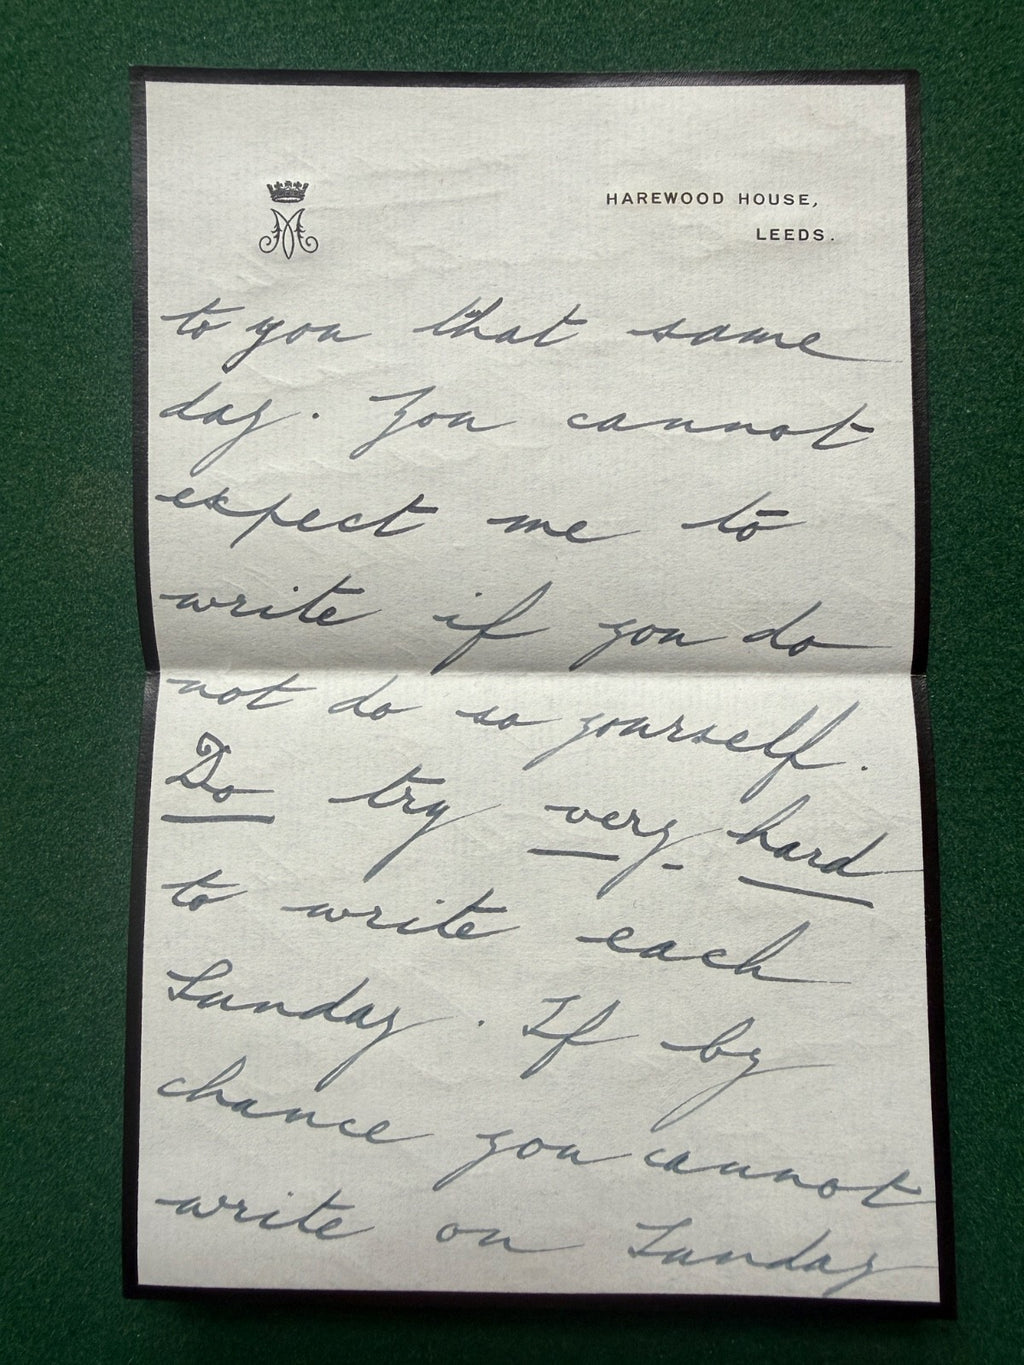 HAREWOOD HOUSE,
LEEDS.
to you that same
day. You cannot
expect me to
write if you do
not do so yourself.
Do try very hard
to write each
Sunday. If by
chance you cannot
write on Sunday